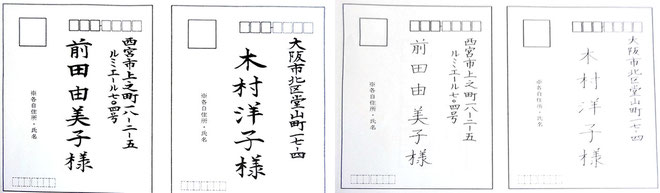 西宮市上之町一八ー二ー五
ルミエール七〇四号
前田由美子様
※各自住所・氏名
大阪市北区堂山町一七ー四
木村洋子様
※各自住所・氏名
西宮市上之町一八ー二ー五
ルミエール七〇四号
前田由美子様
※各自住所・氏名
大阪市北区堂山町一七ー四
木村洋子様
※各自住所・氏名